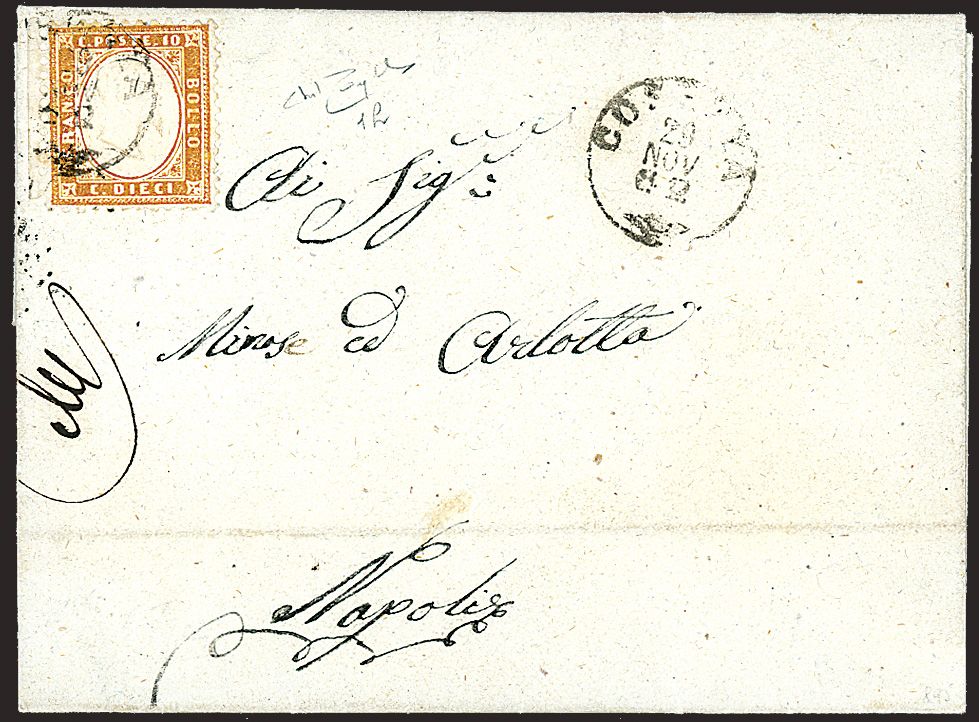 C. POSTE. 10
FRANCO
BOLLO
C. DIECI
20
NOV
Ai Sigri
Minose ed Arlotta
Napoli